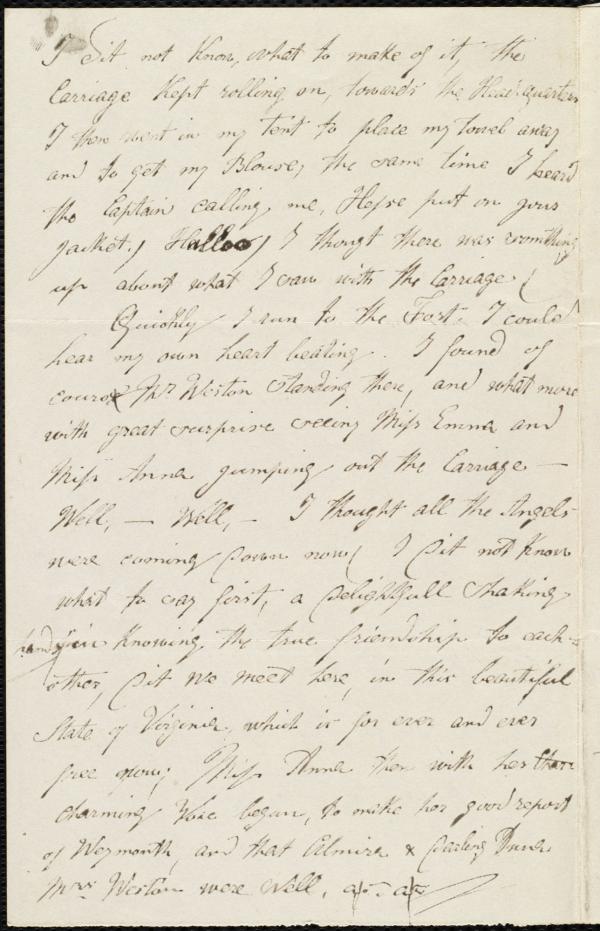 I dit not know, what to make of it, the
Carriage kept rolling on, towards the Headquarters
I then went in my tent to place my towel away
and to get my Blouse, the same time I heard
the Captain calling me, Hesse put on your
jacket! Halloo! I thougt there was something
up about what I saw with the Carriage!
Quickly I run to the Fort. I could
hear my own heart beating. I found of
course Mr Weston standing there, and what more
with great surprise seeing Miss Emma and
Miss Anna jumping out the Carriage —
Well, — Well, — I thought all the Angels
were coming down now! I dit not know
what to say first, a delightfull shaking
hand, knowing the true friendship to each-
other, dit we meet here, in this beautiful
State of Virginia, which is for ever and ever
free now; Miss Anna then with her
charming Voice began, to make her good report
of Weymouth, and that Almira & Darling Anna
Mrs Weston were well,